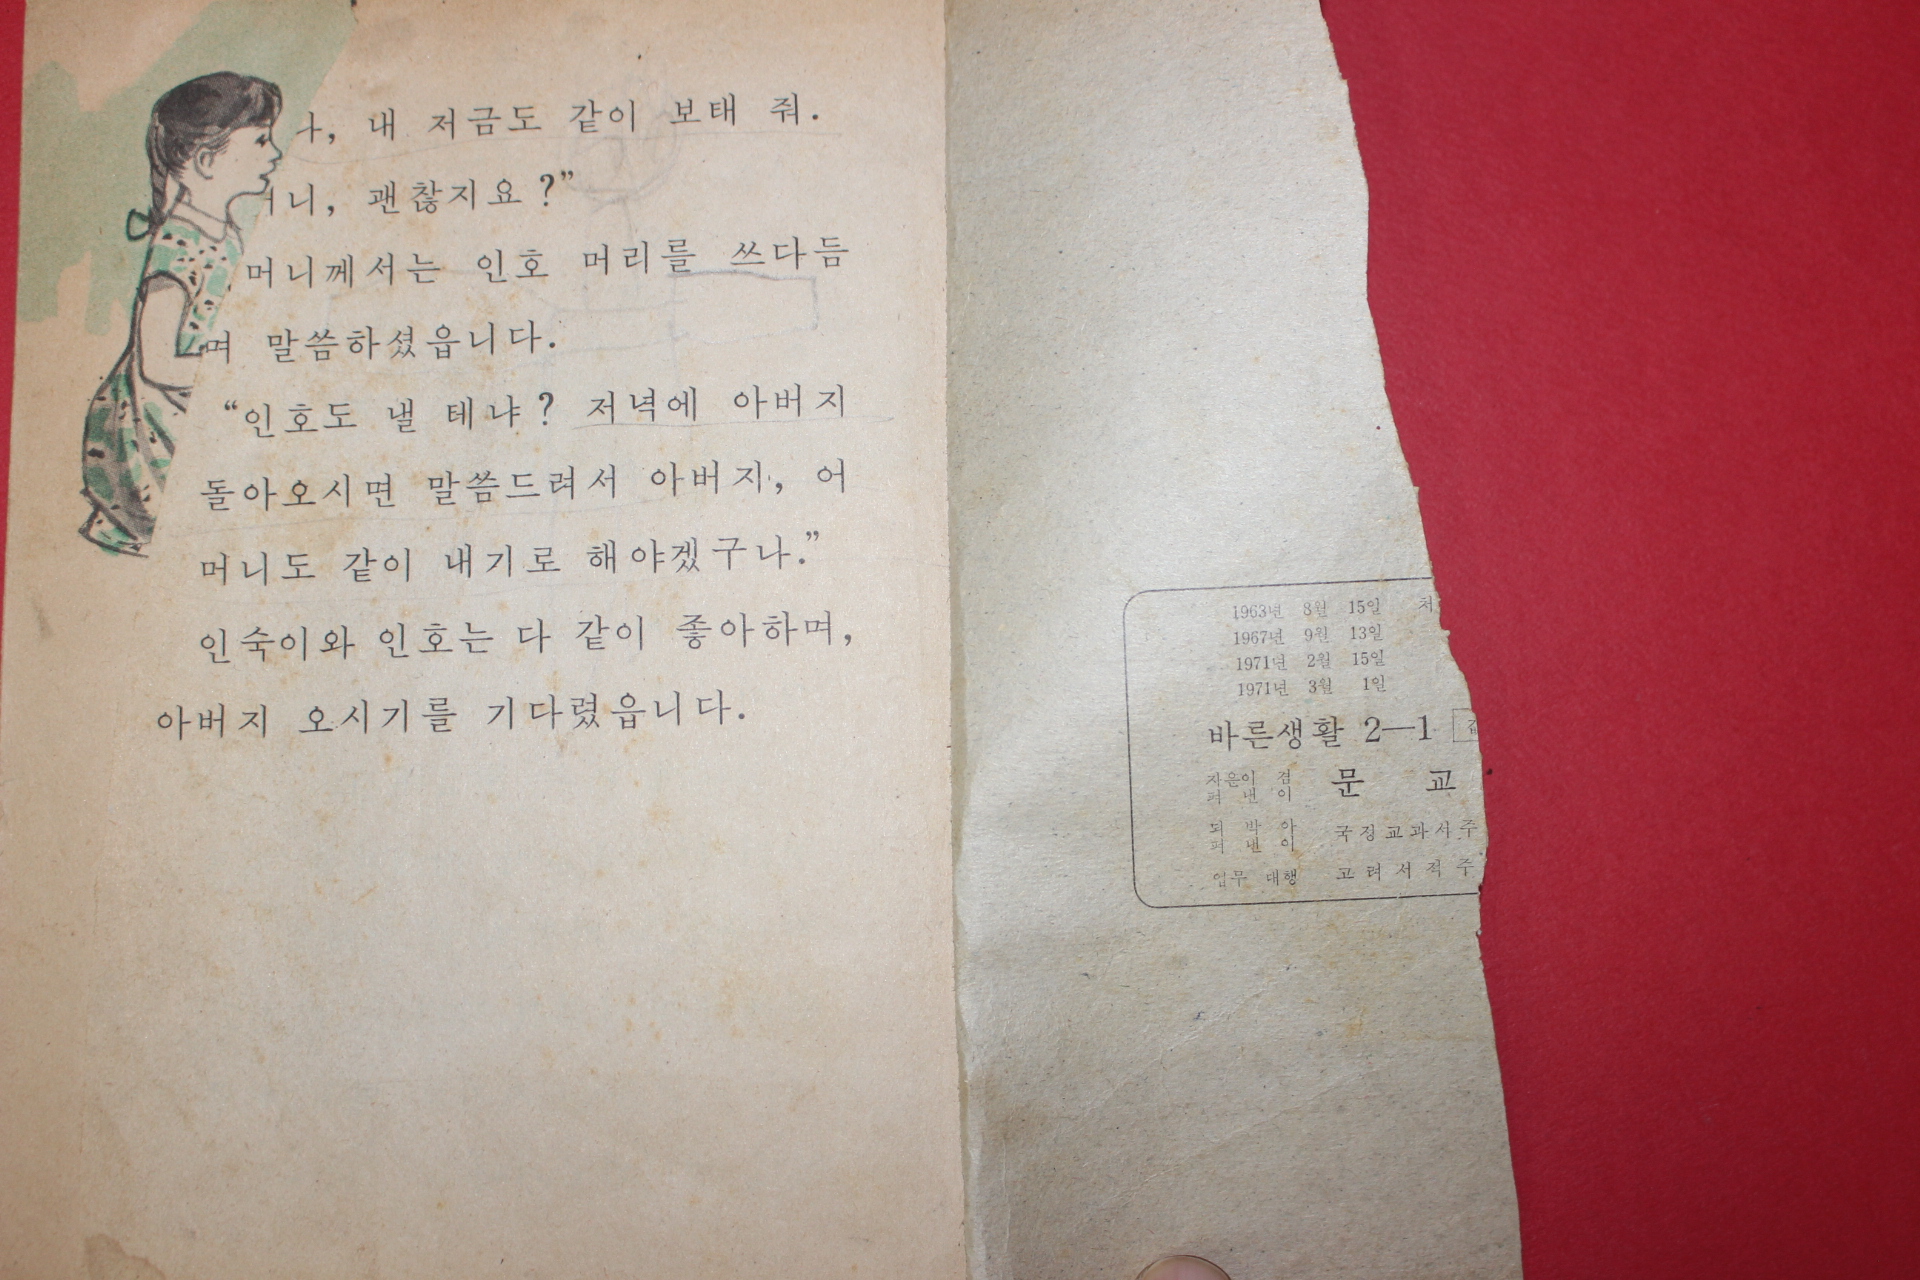 나, 내 저금도 같이 보태 줘.
머니, 괜찮지요?”
머니께서는 인호 머리를 쓰다듬
며 말씀하셨읍니다.
“인호도 낼 테냐? 저녁에 아버지
돌아오시면 말씀드려서 아버지, 어
머니도 같이 내기로 해야겠구나.”
인숙이와 인호는 다 같이 좋아하며,
아버지 오시기를 기다렸읍니다.
1963년 8월 15일 처
1967년 9월 13일
1971년 2월 15일
1971년 3월 1일
바른생활 2—1
지은이 겸
펴 낸 이
문 교
되 박 아
펴 낸 이
국정교과서주
업무 대행 고려서적주